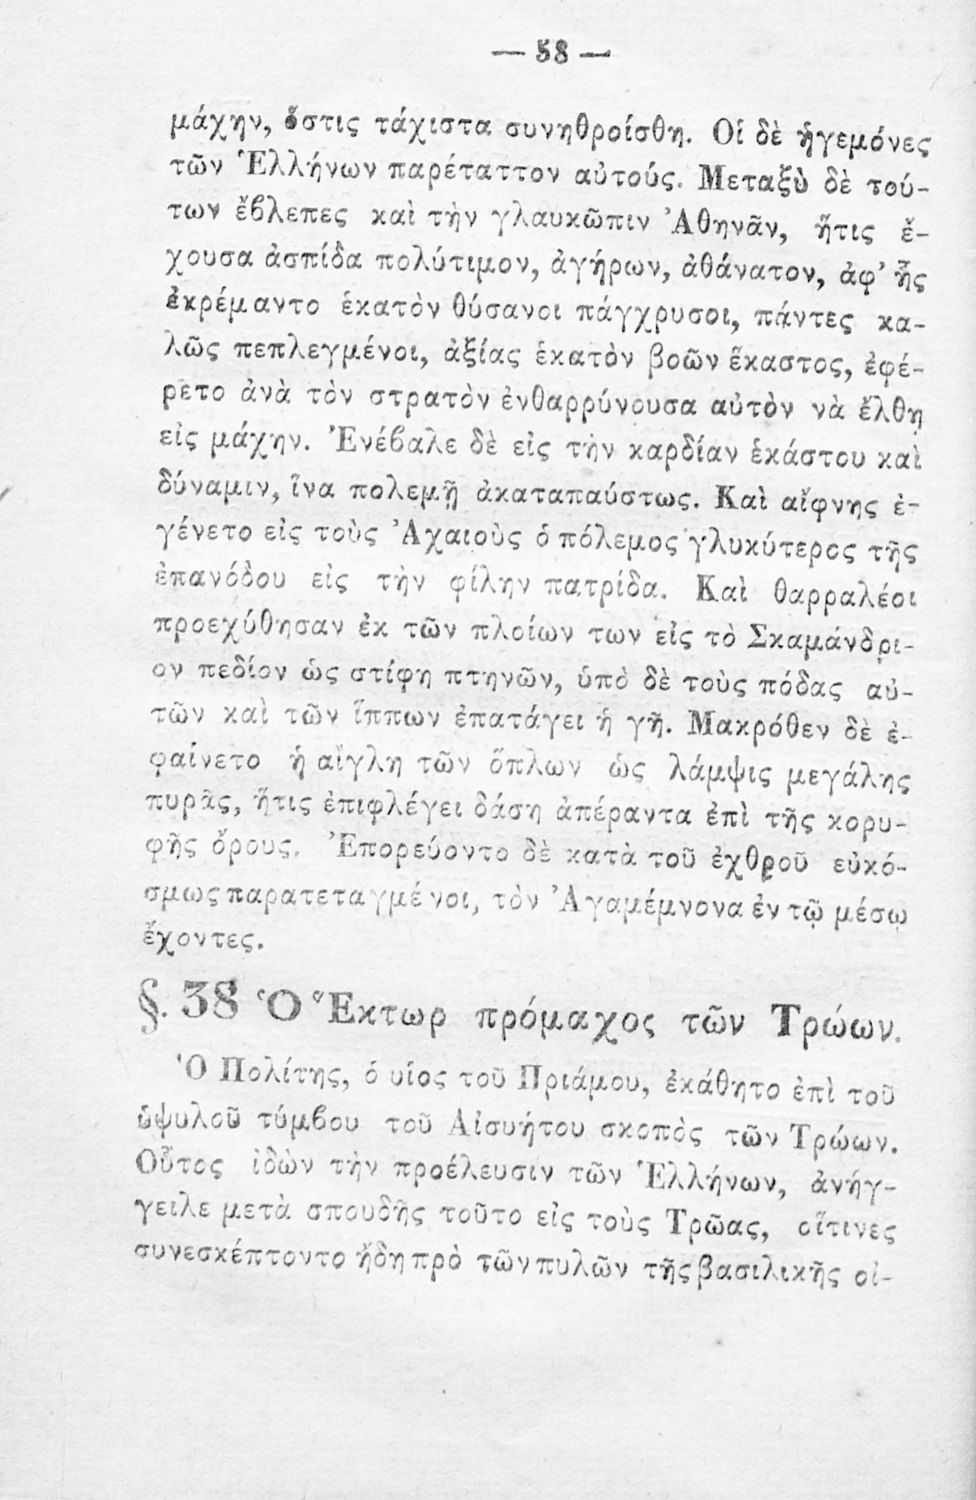 — 58 —
μάχην, ὅστις τάχιστα συνηθροίσθη. Οἱ δὲ ἡγεμόνες
τῶν Ἑλλήνων παρέταττον αὐτούς. Μεταξὺ δὲ τού-
των ἔβλεπες καὶ τὴν γλαυκῶπιν Ἀθηνᾶν, ἥτις ἔ-
χουσα ἀσπίδα πολύτιμον, ἀγήρων, ἀθάνατον, ἀφ' ἧς
ἐκρέμαντο ἑκατὸν θύσανοι πάγχρυσοι, πάντες κα-
λῶς πεπλεγμένοι, ἀξίας ἑκατὸν βοῶν ἕκαστος, ἐφέ-
ρετο ἀνὰ τὸν στρατὸν ἐνθαρρύνουσα αὐτὸν νὰ ἔλθῃ
εἰς μάχην. Ἐνέβαλε δὲ εἰς τὴν καρδίαν ἑκάστου καὶ
δύναμιν, ἵνα πολεμῇ ἀκαταπαύστως. Καὶ αἴφνης ἐ-
γένετο εἰς τοὺς Ἀχαιοὺς ὁ πόλεμος γλυκύτερος τῆς
ἐπανόδου εἰς τὴν φίλην πατρίδα. Καὶ θαρραλέοι
προεχύθησαν ἐκ τῶν πλοίων των εἰς τὸ Σκαμάνδρι-
ον πεδίον ὡς στίφη πτηνῶν, ὑπὸ δὲ τοὺς πόδας αὐ-
τῶν καὶ τῶν ἵππων ἐπατάγει ἡ γῆ. Μακρόθεν δὲ ἐ-
φαίνετο ἡ αἴγλη τῶν ὅπλων ὡς λάμψις μεγάλης
πυρᾶς, ἥτις ἐπιφλέγει δάση ἀπέραντα ἐπὶ τῆς κορυ-
φῆς ὄρους. Ἐπορεύοντο δὲ κατὰ τοῦ ἐχθροῦ εὐκό-
σμως παρατεταγμένοι, τὸν Ἀγαμέμνονα ἐν τῷ μέσῳ
ἔχοντες.
§. 38 Ὁ Ἕκτωρ πρόμαχος τῶν Τρώων.
Ὁ Πολίτης, ὁ υἱος τοῦ Πριάμου, ἐκάθητο ἐπὶ τοῦ
ὑψυλοῦ τύμβου τοῦ Αἰσυήτου σκοπὸς τῶν Τρώων.
Οὗτος ἰδὼν τὴν προέλευσιν τῶν Ἑλλήνων, ἀνήγ-
γειλε μετὰ σπουδῆς τοῦτο εἰς τοὺς Τρῶας, οἵτινες
συνεσκέπτοντο ἤδη πρὸ τῶν πυλῶν τῆς βασιλικῆς οἰ-